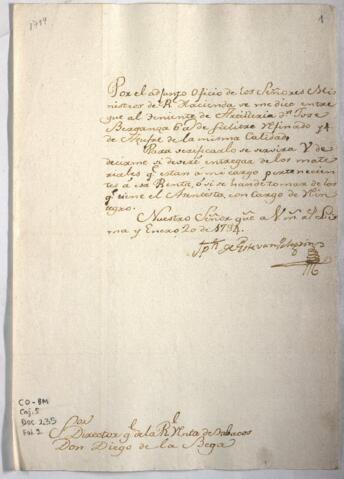 1784
1
Por el adjunto Oficio de los Señores Mi-
nistros de Rl. Hacienda se me dice entre
gue al Teniente de Artilleria dn. Jose
Braganza 6 @s de Salitre refinado y 4
de Azufre de la misma Calidad.
Para verificarlo se servira V de
decirme si deveré entregar de los mate
riales qe. estan a mi cargo pertenecien
tes á esa Renta, ó si se han de tomar de los
qe. tiene el Asentista con cargo de Rein
tegro.
Nuestro Señor gue. a Vm. ms. as. Li
ma y Enero 20 de 1784.
Sor.
Director gl. de la Rl. Renta de tabacos
Don Diego de la Bega
CO-BM
Caj. 5
Doc 235
Fol. 1